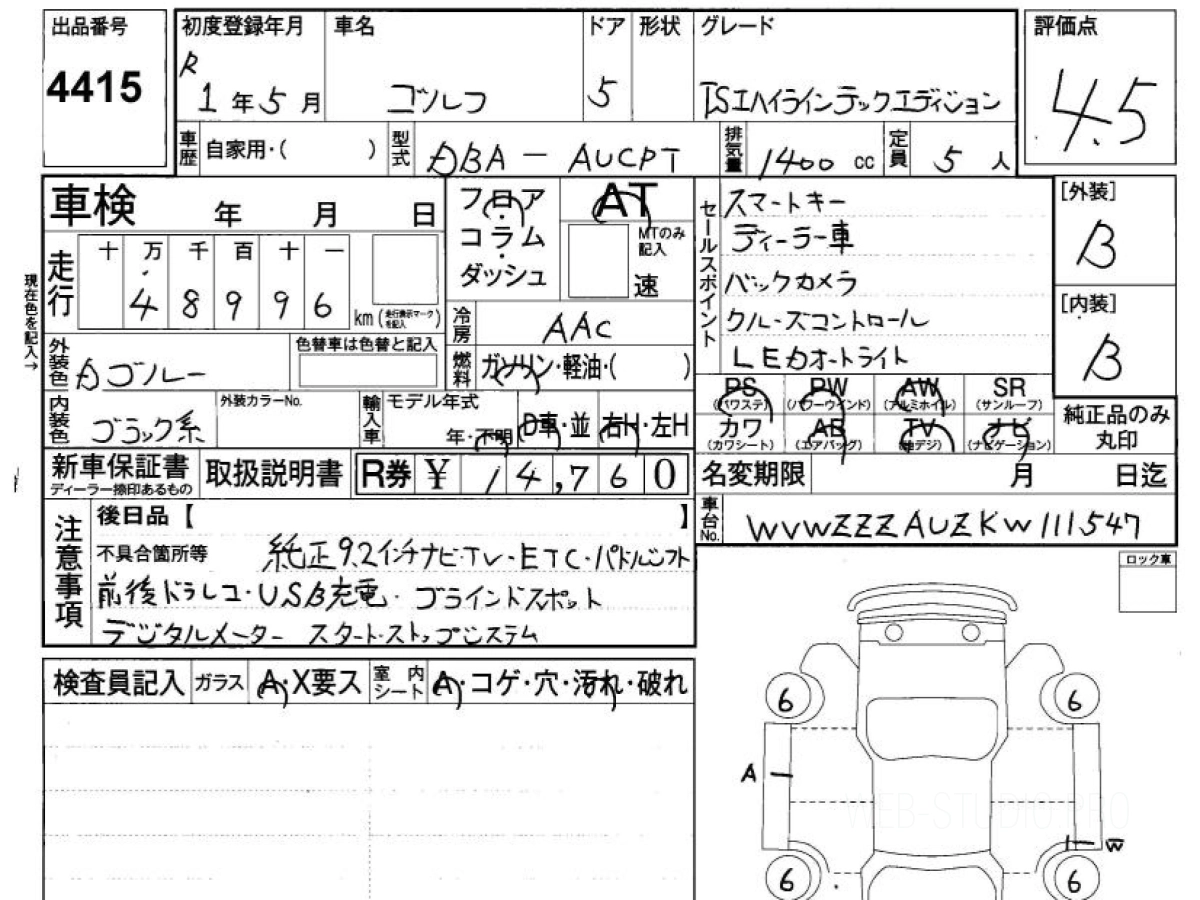 出品番号
4415
初度登録年月
R
1年5月
車名
ゴルフ
ドア
5
形状
グレード
TSIハイラインテックエディション
評価点
4.5
車歴 自家用・( )
型式 DBA - AUCPT
排気量 1400 cc
定員 5 人
車検 年 月 日
フロア
コラム
ダッシュ
AT
MTのみ
記入
速
セールスポイント
スマートキー
ディーラー車
バックカメラ
クルーズコントロール
LEDオートライト
[外装]
B
[内装]
B
現在色を記入→
走行
十 万 千 百 十 一
4 8 9 9 6
km(走行表示マークを記入)
冷房 AAC
燃料 ガソリン・軽油・( )
外装色
色替車は色替と記入
PS
(パワステ)
PW
(パワーウインド)
AW
(アルミホイル)
SR
(サンルーフ)
カワ
(カワシート)
AB
(エアバッグ)
TV
(地デジ)
ナビ
(ナビゲーション)
純正品のみ
丸印
内装色 ブラック系
外装カラーNo.
輸入車
モデル年式
年・不明
D車・並
右H・左H
新車保証書
ディーラー捺印あるもの
取扱説明書
R券 ¥ 14,760
名変期限 月 日迄
車台No. WVWZZZAUZKW111547
注意事項
後日品【 】
不具合箇所等 純正9.2インチナビ・TV・ETC・パドルシフト
前後ドラレコ・USB充電・ブラインドスポット
デジタルメーター スタート・ストップシステム
ロック車
検査員記入 ガラス A・X要ス 室内シート A・コゲ・穴・汚れ・破れ
6
6
A
WEB-STUDIO.PRO
W
6
6